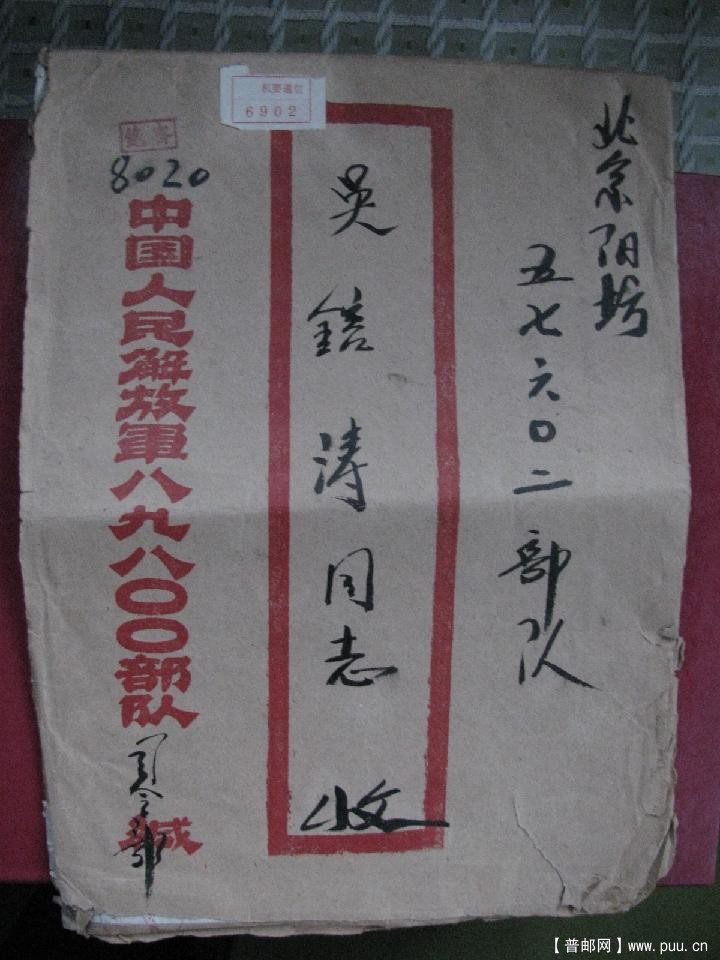 机要通信
6902
北京阳坊
五七六〇二部队
吴铠涛同志 收
8020
中国人民解放军八九八〇〇部队
司令部
缄
【普邮网】www.puu.cn